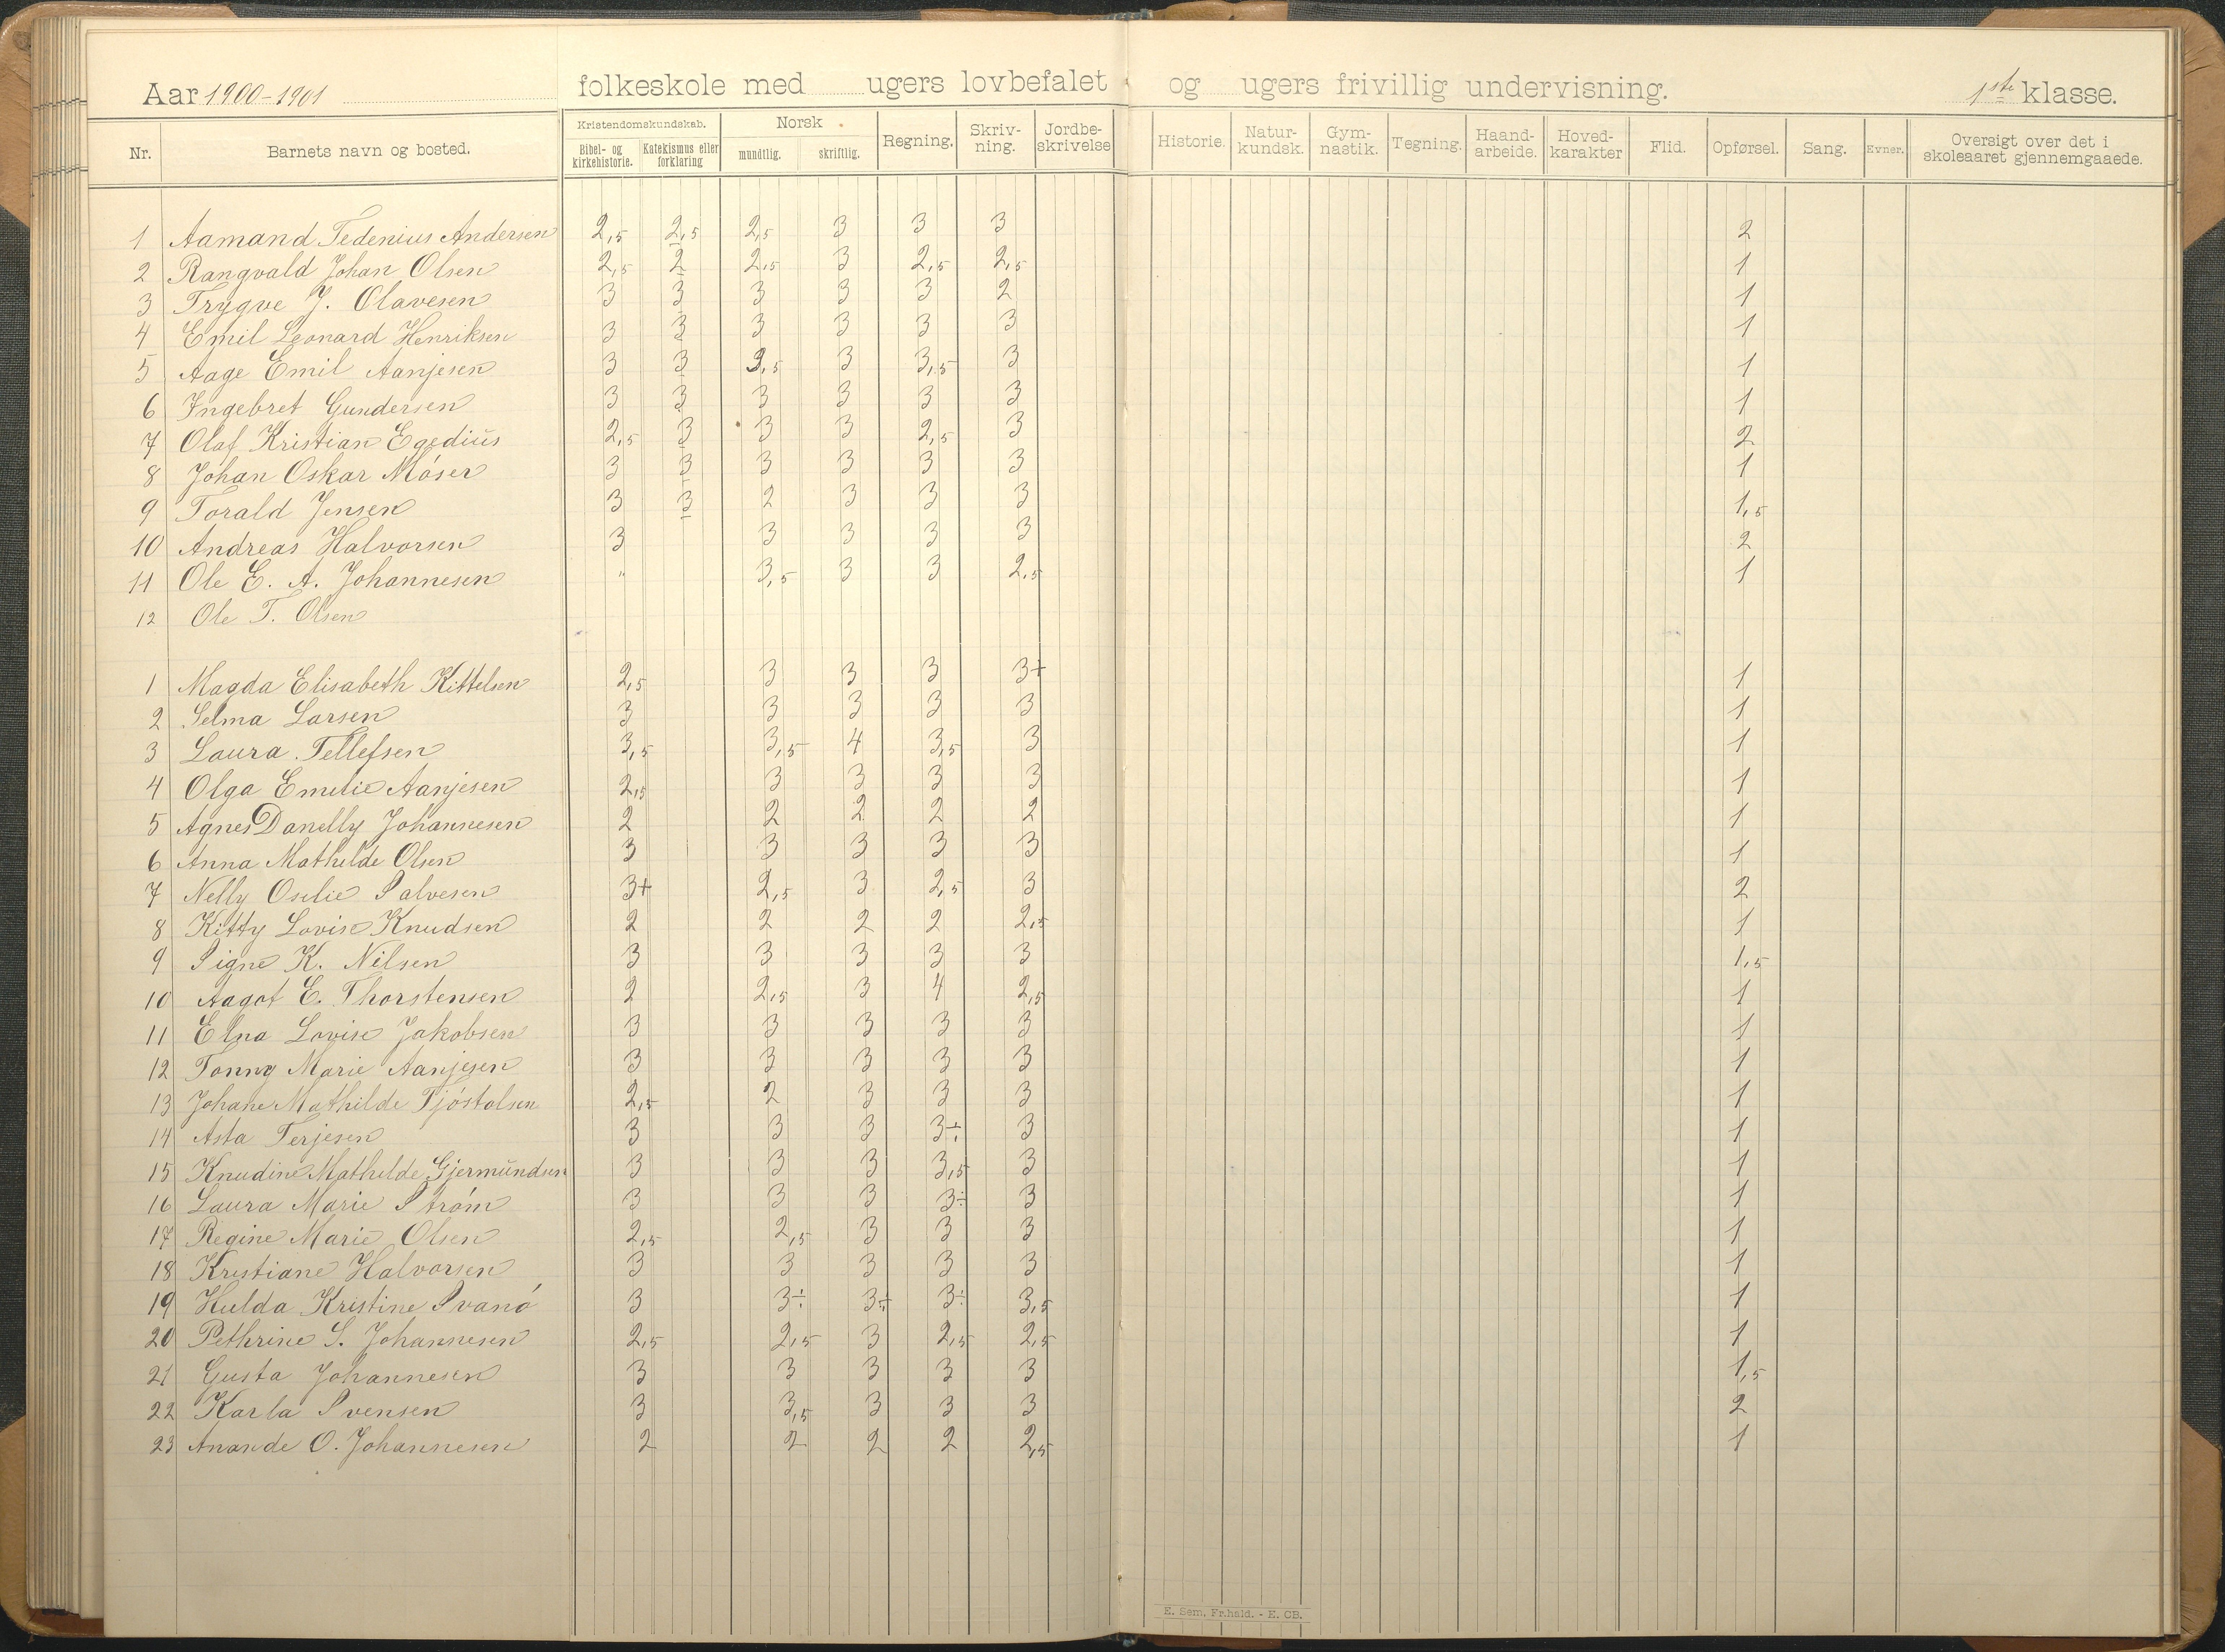 Aar 1900-1901 folkeskole med ugers lovbefalet og ugers frivillig undervisning. 1ste klasse.
Nr. Barnets navn og bosted. Kristendomskundskab. Bibel- og kirkehistorie. Katekismus eller forklaring Norsk mundtlig. skriftlig. Regning. Skriv-ning. Jordbe-skrivelse Historie. Natur-kundsk. Gym-nastik. Tegning. Haand-arbeide. Hoved-karakter Flid. Opførsel. Sang. Evner. Oversigt over det i skoleaaret gjennemgaaede.
1 Aamand Tedenius Andersen 2,5 2,5 2,5 3 3 3 2
2 Rangvald Johan Olsen 2,5 2 2,5 3 2,5 2,5 1
3 Trygve J. Olavesen 3 3 3 3 3 2 1
4 Emil Leonard Henriksen 3 3 3 3 3 3 1
5 Aage Emil Aanjesen 3 3 3,5 3 3,5 3 1
6 Ingebret Gundersen 3 3 3 3 3 3 1
7 Olaf Kristian Egedius 2,5 3 3 3 2,5 3 2
8 Johan Oskar Móser 3 3 3 3 3 3 1
9 Torald Jensen 3 3 2 3 3 3 1,5
10 Andreas Halvorsen 3 3 3 3 3 2
11 Ole E. A. Johannesen " 3,5 3 3 2,5 1
12 Ole T. Olsen
1 Magda Elisabeth Kittelsen 2,5 3 3 3 3+ 1
2 Selma Larsen 3 3 3 3 3 1
3 Laura Tellefsen 3,5 3,5 4 3,5 3 1
4 Olga Emelie Aanjesen 2,5 3 3 3 3 1
5 Agnes Danelly Johannesen 2 2 2 2 2 1
6 Anna Mathilde Olsen 3 3 3 3 3 1
7 Nelly Oselie Salvesen 3+ 2,5 3 2,5 3 2
8 Kitty Lovise Knudsen 2 2 2 2 2,5 1
9 Signe K. Nilsen 3 3 3 3 3 1,5
10 Aagot E. Thorstensen 2 2,5 3 4 2,5 1
11 Elna Lovise Jakobsen 3 3 3 3 3 1
12 Tonny Marie Aanjesen 3 3 3 3 3 1
13 Johane Mathilde Tjóstolsen 2,5 2 3 3 3 1
14 Asta Terjesen 3 3 3 3÷ 3 1
15 Knudine Mathilde Gjermundsen 3 3 3 3,5 3 1
16 Laura Marie Stróm 3 3 3 3÷ 3 1
17 Regine Marie Olsen 2,5 2,5 3 3 3 1
18 Kristiane Halvorsen 3 3 3 3 3 1
19 Hulda Kristine Svanó 3 3÷ 3÷ 3÷ 3,5 1
20 Pethrine S. Johannesen 2,5 2,5 3 2,5 2,5 1
21 Gusta Johannesen 3 3 3 3 3 1,5
22 Karla Svensen 3 3,5 3 3 3 2
23 Anande O. Johannesen 2 2 2 2 2,5 1
E. Sem, Fr.hald. - E. CB.